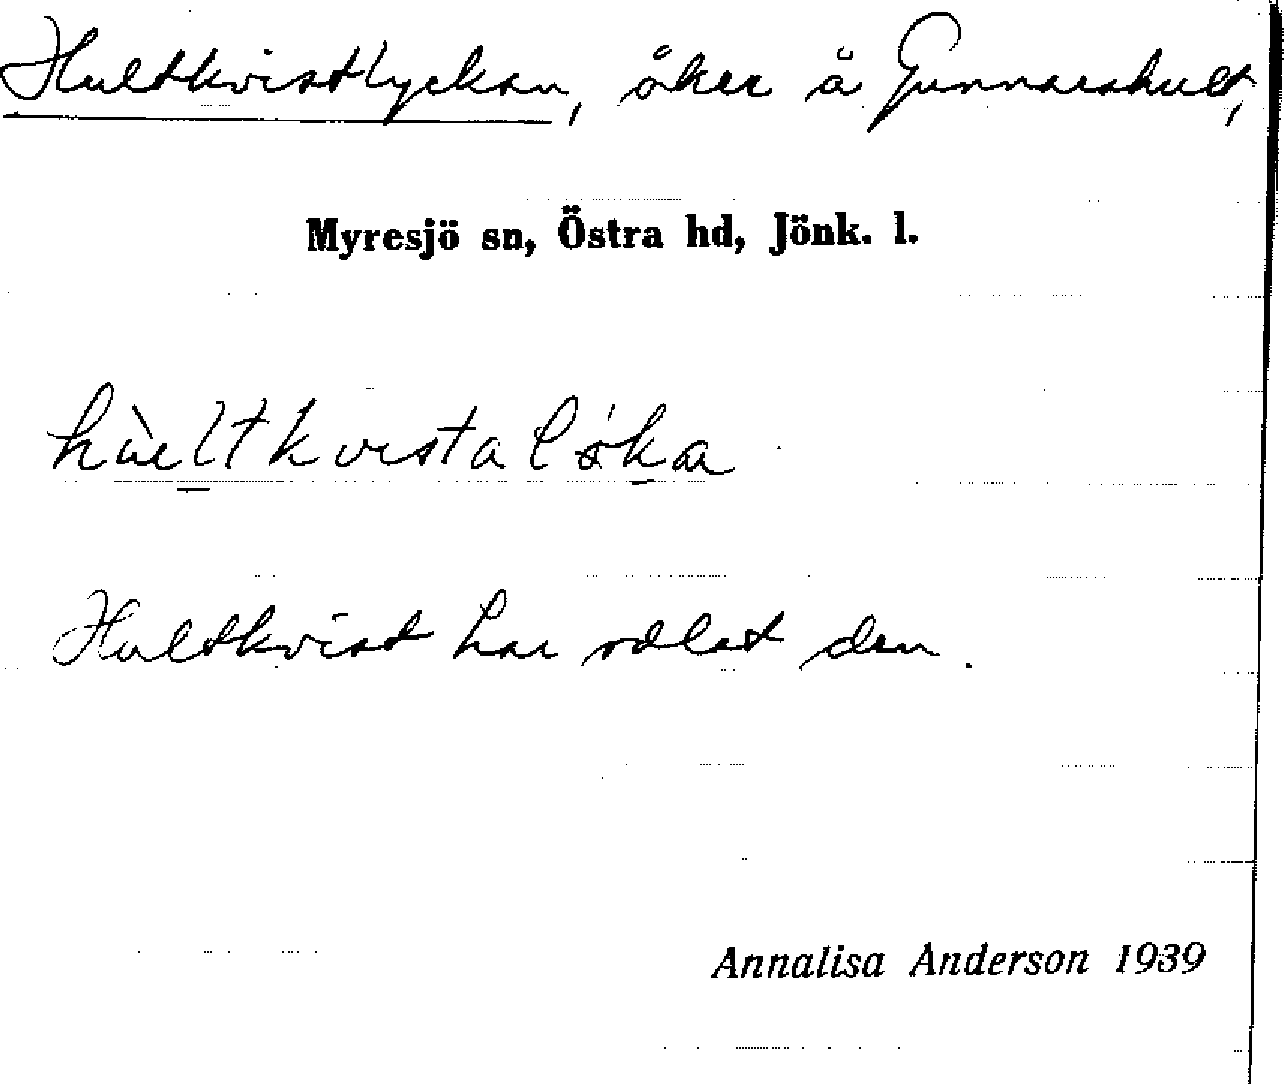 Hultkvistlyckan, åker å Gunnarshult,
Myresjö sn, Östra hd, Jönk. l.
hùeltkvistaløka
Hultkvist har odlat den.
Annalisa Anderson 1939